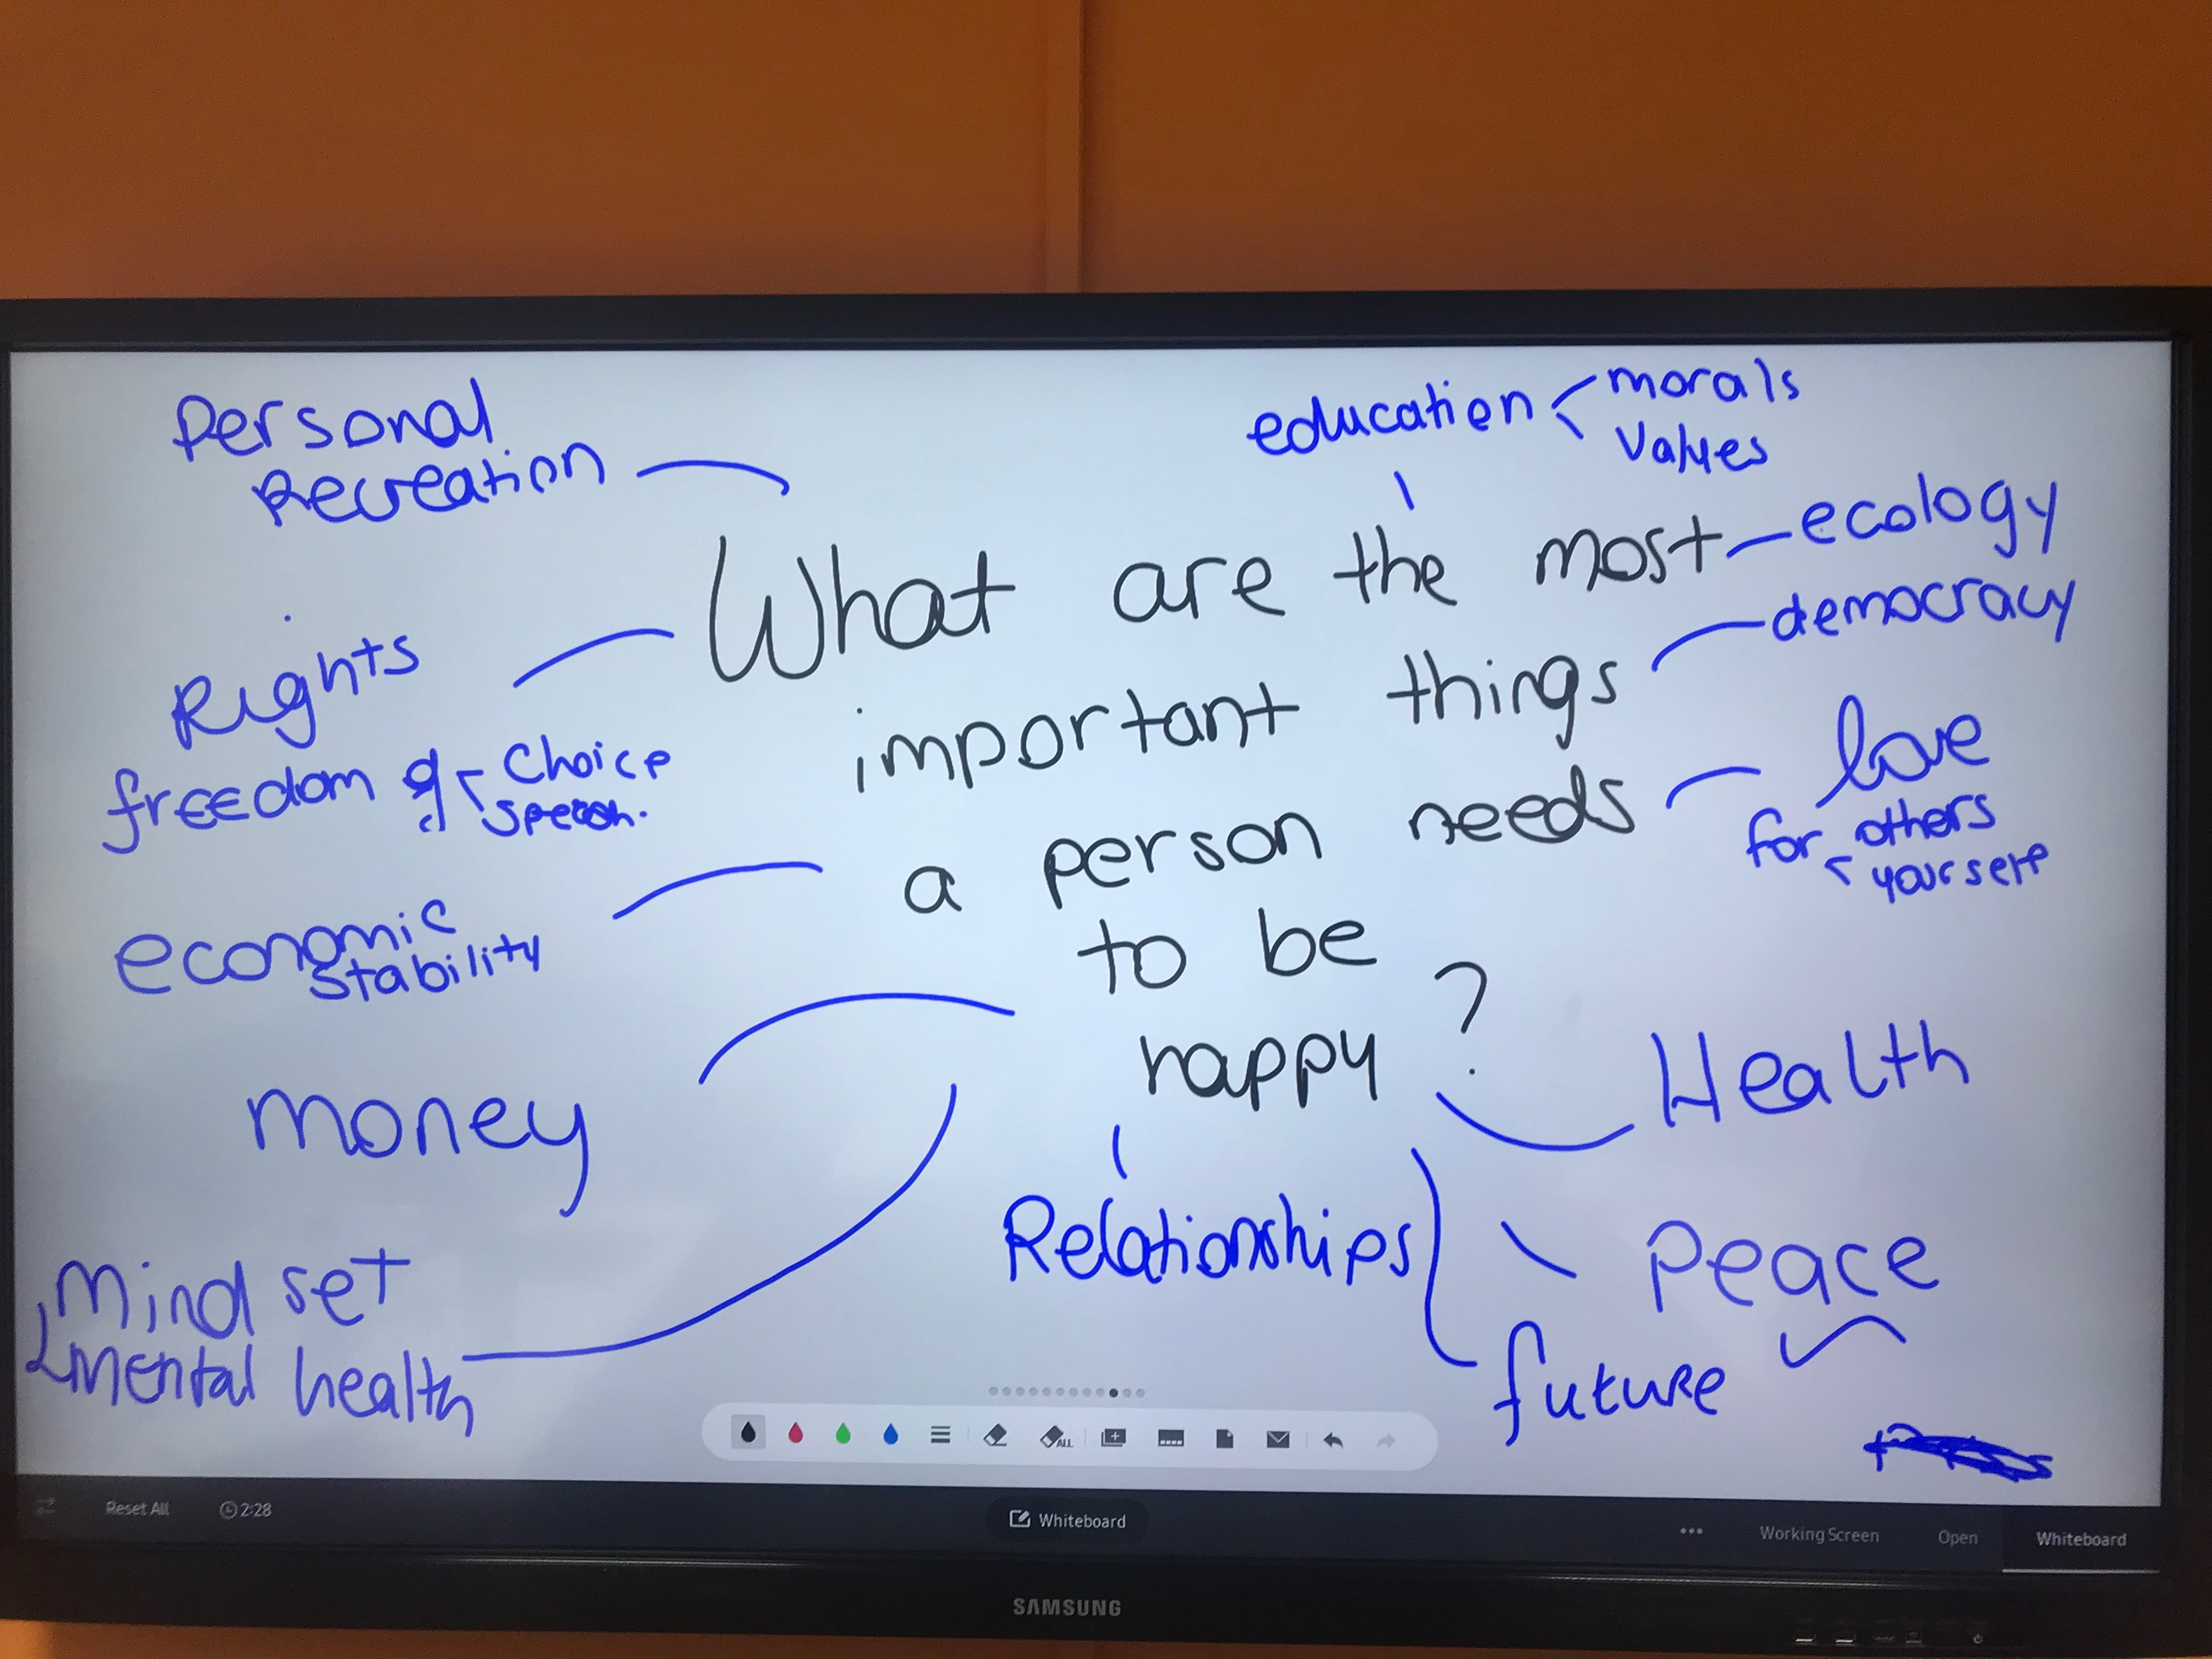 Personal
Recreation
education
morals
Values
ecology
democracy
What are the most
important things
a person needs
to be
happy ?
Rights
freedom of
Choice
speech.
love
for others
yourself
economic
stability
money
Health
Relationships
Peace
future
Mind set
Mental health
ALL
Reset All
2:28
Whiteboard
Working Screen
Open
Whiteboard
SAMSUNG